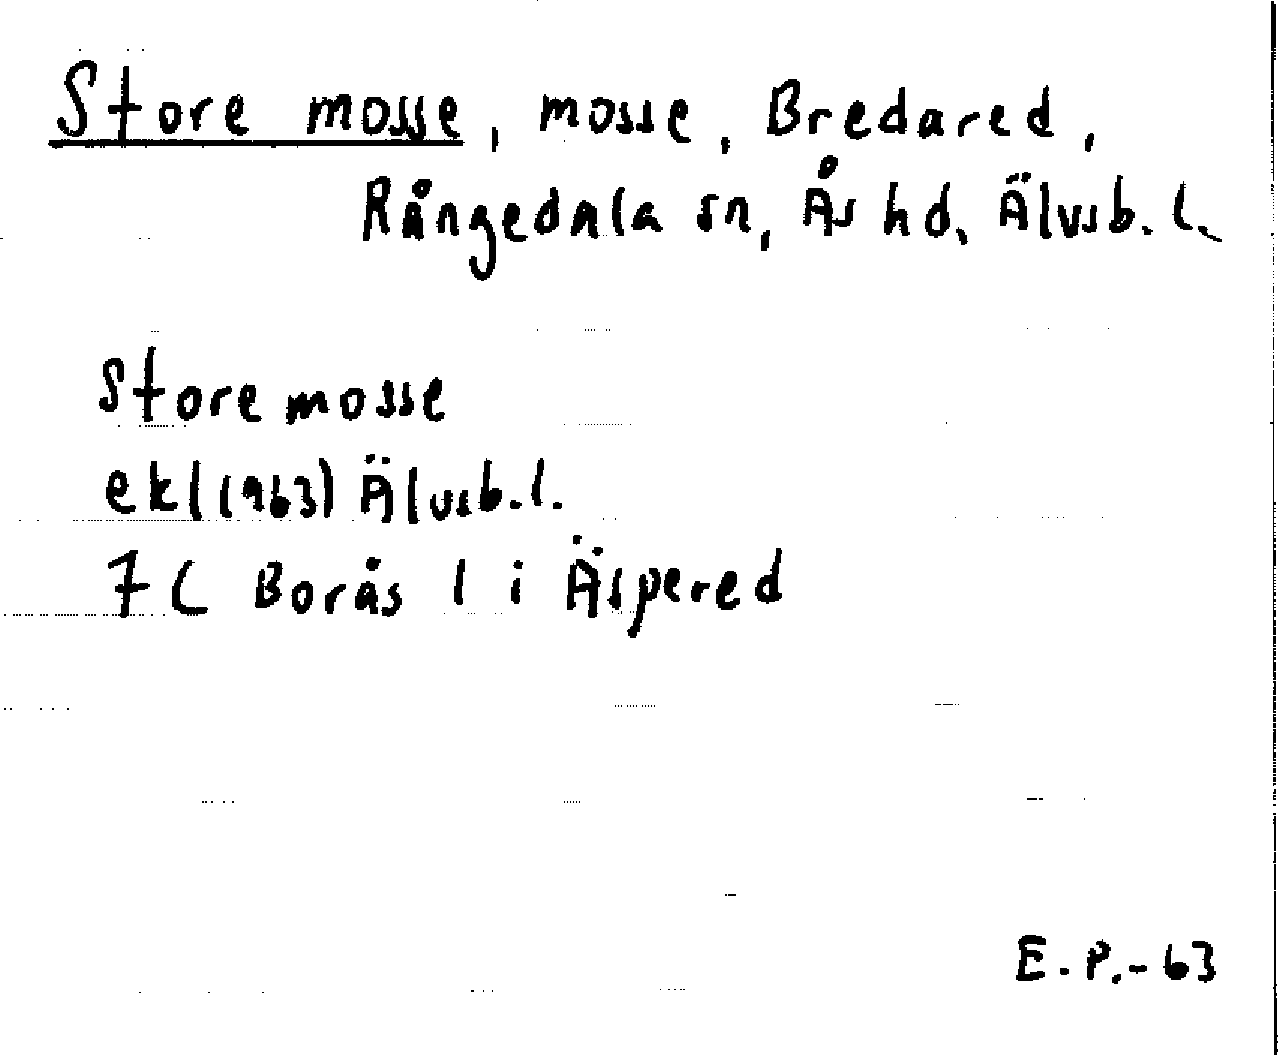 Store mosse, mosse, Bredared,
Rångedala sn, Ås hd, Älvsb. l.
Store mosse
ekl (1963) Älvsb. l.
7C Borås l i Äspered
E. P. - 63